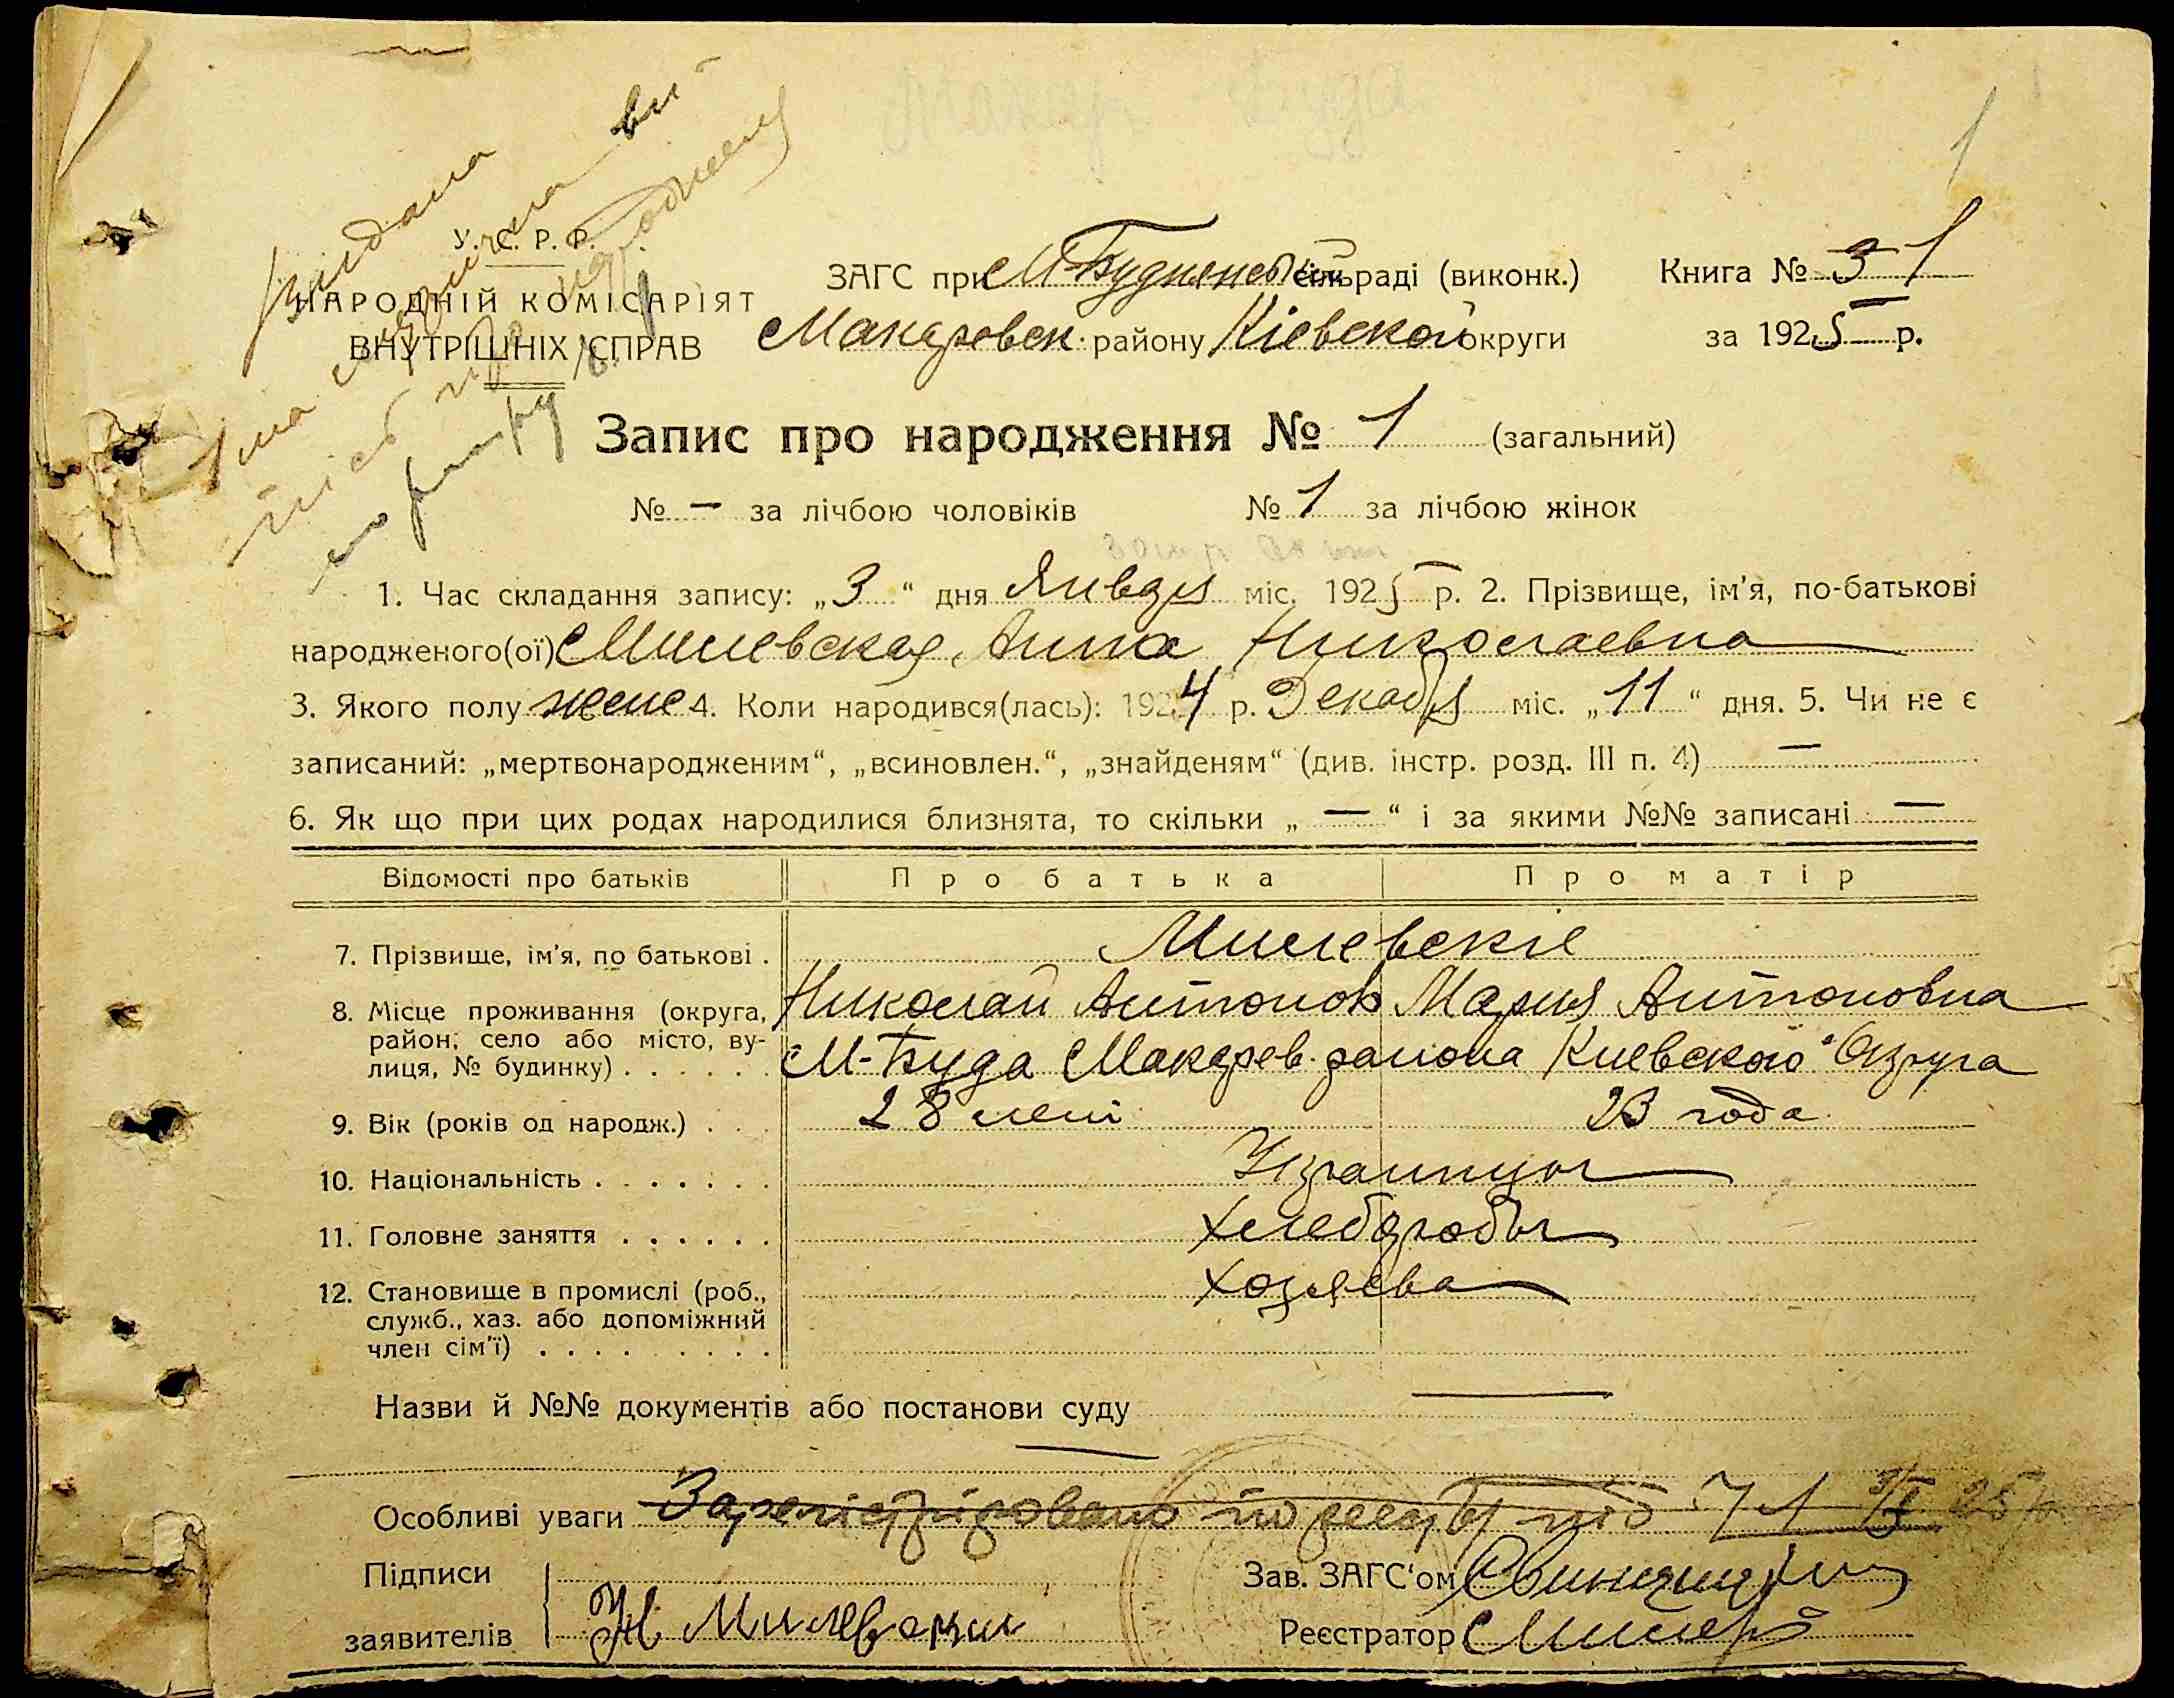 У. С. Р. Р.
НАРОДНІЙ КОМІСАРІЯТ
ВНУТРІШНІХ СПРАВ
ЗАГС при М-Буднянськ сільраді (виконк.)
Макаровск. району Кіевской округи
Книга № 3 1
за 1925 р.
Запис про народження № 1 (загальний)
№ — за лічбою чоловіків № 1 за лічбою жінок
1. Час складання запису: „3“ дня Января міс. 1925 р. 2. Прізвище, ім'я, по-батькові
народженого(ої) Милевская Анна Николаевна
3. Якого полу женс 4. Коли народився(лась): 1924 р. Декабря міс. „11“ дня. 5. Чи не є
записаний: „мертвонародженим“, „всиновлен.“, „знайденям“ (див. інстр. розд. III п. 4) —
6. Як що при цих родах народилися близнята, то скільки „ — “ і за якими №№ записані —
Відомості про батьків Про батька Про матір
7. Прізвище, ім'я, по батькові . Милевскіе
8. Місце проживання (округа, Николай Антонов Мария Антоновна
район, село або місто, ву-
лиця, № будинку) . . . . . . М-Буда Макаров. района Киевского Округа
9. Вік (років од народж.) . . . 28 лет 23 года
10. Національність . . . . . . . Украинцы
11. Головне заняття . . . . . . Хлеборобы
12. Становище в промислі (роб., Хозяева
служб., хаз. або допоміжний
член сім'ї) . . . . . . . . .
Назви й №№ документів або постанови суду —
Особливі уваги Зарегістрировано по реестру під № 1 3/I 25 р.
Підписи
заявителів Н Милевский
Зав. ЗАГС'ом
Реєстратор